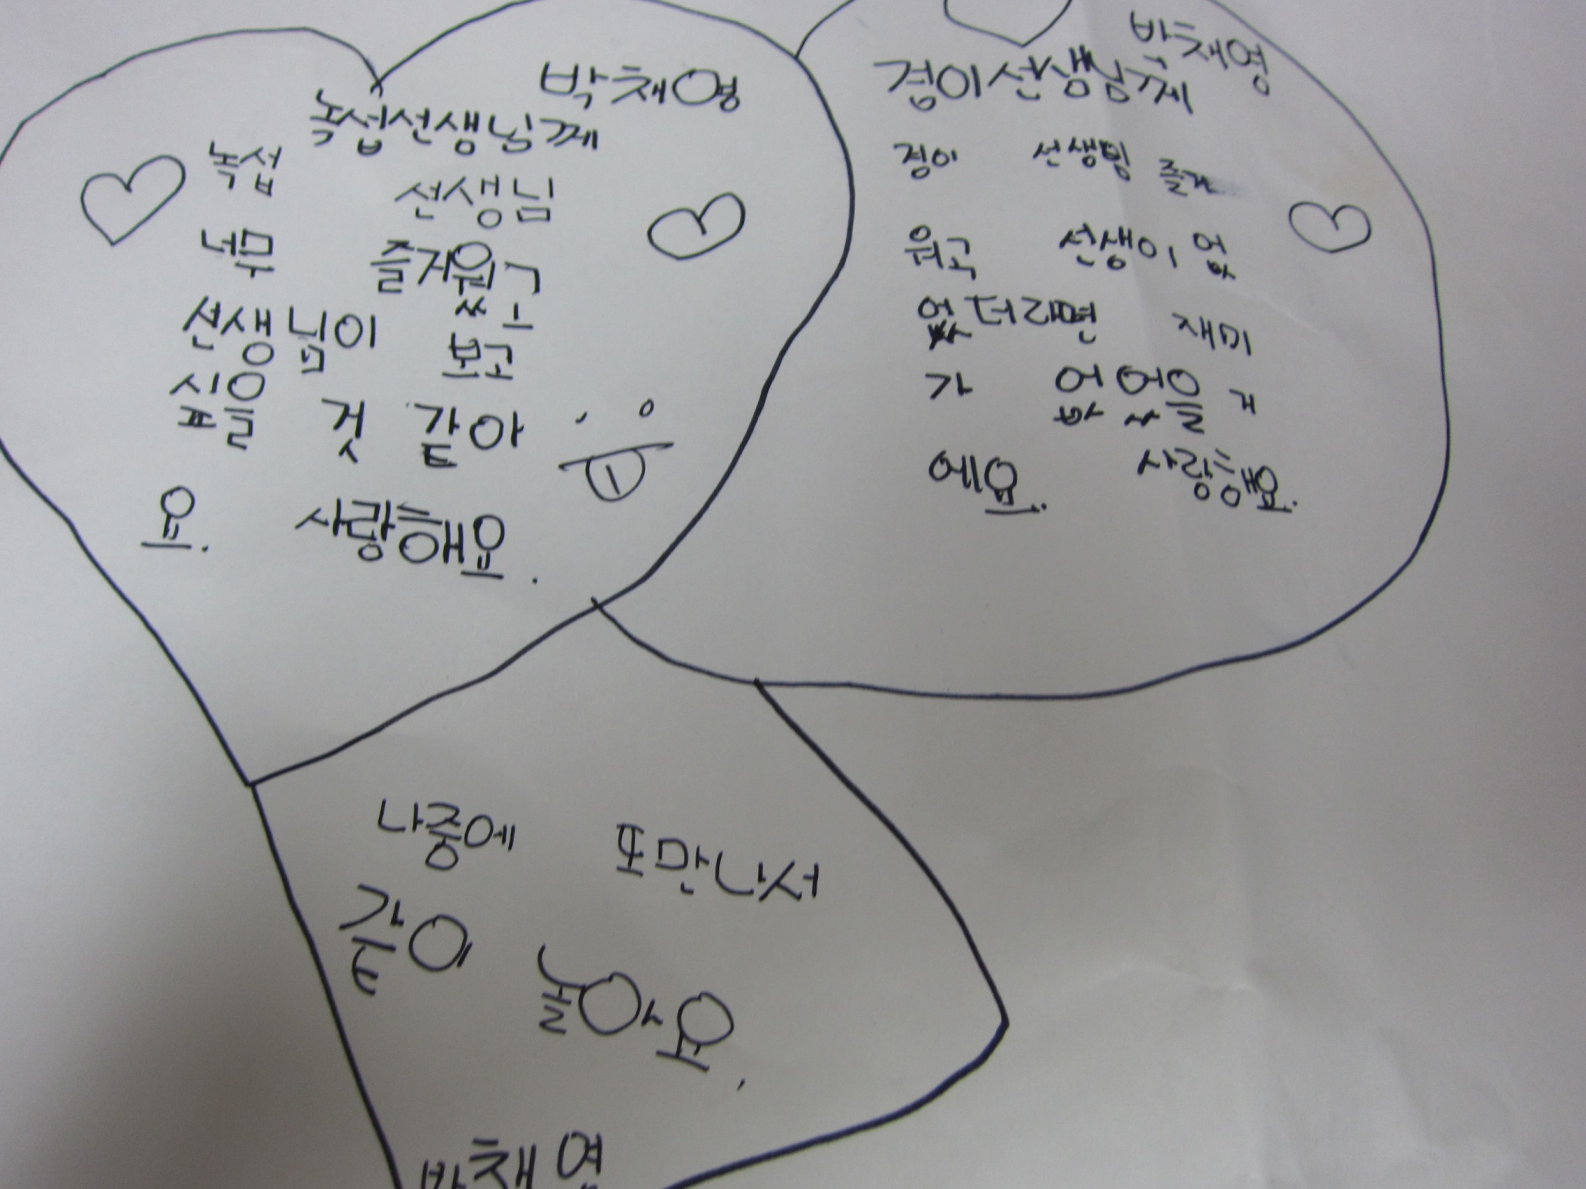 박채영
녹섭선생님께
녹섭 선생님
너무 즐거웠고
선생님이 보고
싶을 것 같아
요. 사랑해요.
박채영
겸이선생님께
겸이 선생님 즐거
워고 선생이 없
없더라면 재미
가 없었을 거
에요. 사랑해요.
나중에 또만나서
같이 놀아요.
박채영